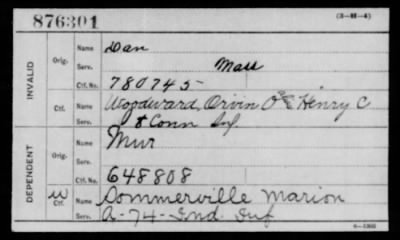 876301 (3-H-4)
INVALID
Orig. Name Dan
Serv. Mass
Ctf. No. 780745
Ctf. Name Woodward, Orvin Henry C
Serv. 8 Conn Inf.
DEPENDENT
Orig. Name Mur
Serv.
Ctf. No. 648808
W Ctf. Name Sommerville Marion
Serv. A-74-Ind. Inf